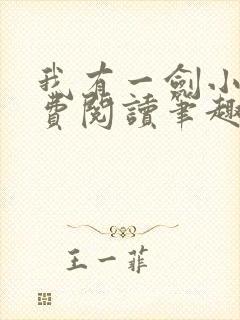 我有一劍小
費閱讀筆趣
王一菲